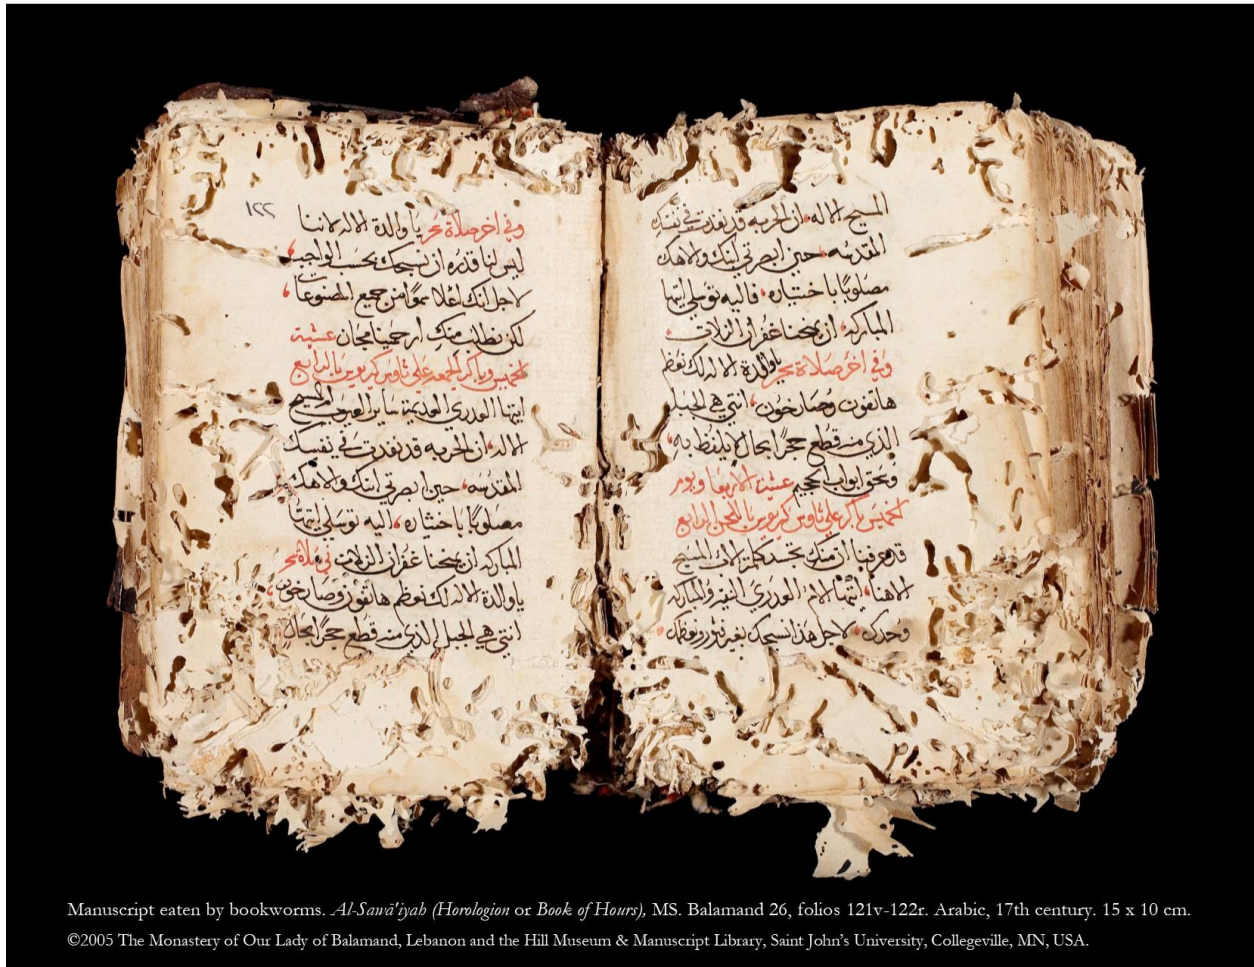 المسيح الاله، ان الحربه قد نفدت في نفسك
المقدسه، حين ابصرتي ابنك والاهك
مصلوبًا باختياره، فاليه توسلي ايتها
المباركه، ان يمنحنا غفران الزلات
وفي اخر صلاة سحر ياوالدة الاله لك نعظم
هاتفون وصارخون، انتي هي الجبل
الذي منه قطع حجرًا بحال لا يلفظ به،
وسحق ابواب الجحيم عشية الاربعا ويوم
الخميس باكر علي ثاوس كيريوس باللحن الرابع
قد عرفنا ان منك تجسد كلمة الاب المسيح
الاهنا، ايتها الام العذري النقيه والمباركه
وحدك، لاجل هذا نسبحك بغير فتور ونعظمك
١٢٢
وفي اخر صلاة سحر ياوالدة الاله لاننا
ليس لنا قدره ان نسبحك بحسب الواجب،
لاجل انك اعلا سموًا من جميع المصنوعات،
لكن نطلب منك ارحمينا مجان عشية
الخميس وباكر الجمعه علي ثاوس كيريوس بالرابع
ايتها العذري العديمة ساير العيوب ام المسيح
الاله، ان الحربه قد نفدت في نفسك
المقدسه، حين ابصرتي ابنك والاهك
مصلوبًا باختياره، اليه توسلي ايتها
المباركه ان يمنحنا غفران الزلات في صلاة سحر
ياوالدة الاله لك نعظم هاتفون وصارخون،
انتي هي الجبل الذي منه قطع حجرًا بحال
Manuscript eaten by bookworms. Al-Sawā'iyah (Horologion or Book of Hours), MS. Balamand 26, folios 121v-122r. Arabic, 17th century. 15 x 10 cm.
©2005 The Monastery of Our Lady of Balamand, Lebanon and the Hill Museum & Manuscript Library, Saint John's University, Collegeville, MN, USA.